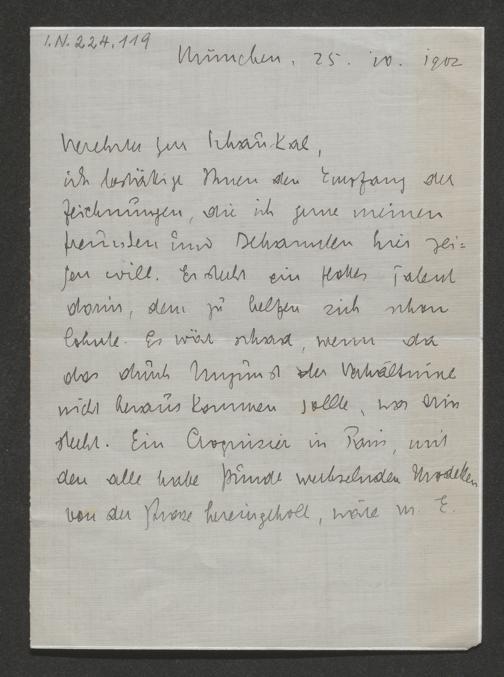 I.N. 224.119
München. 25. 10. 1902
Verehrter Herr Schaukal,
ich bestätige Ihnen den Empfang der
Zeichnungen, die ich gerne meinen
Freunden und Bekannten hier zei=
gen will. Es steckt ein flottes Talent
darin, dem zu helfen sich schon
lohnte. Es wär schad, wenn da
das durch Ungunst der Verhältnisse
nicht herauskommen sollte, was drin
steckt. Ein Croquisier in Paris, mit
den alle halbe Stunde wechselnden Modellen
von der Strasse hereingeholt, wäre m. E.